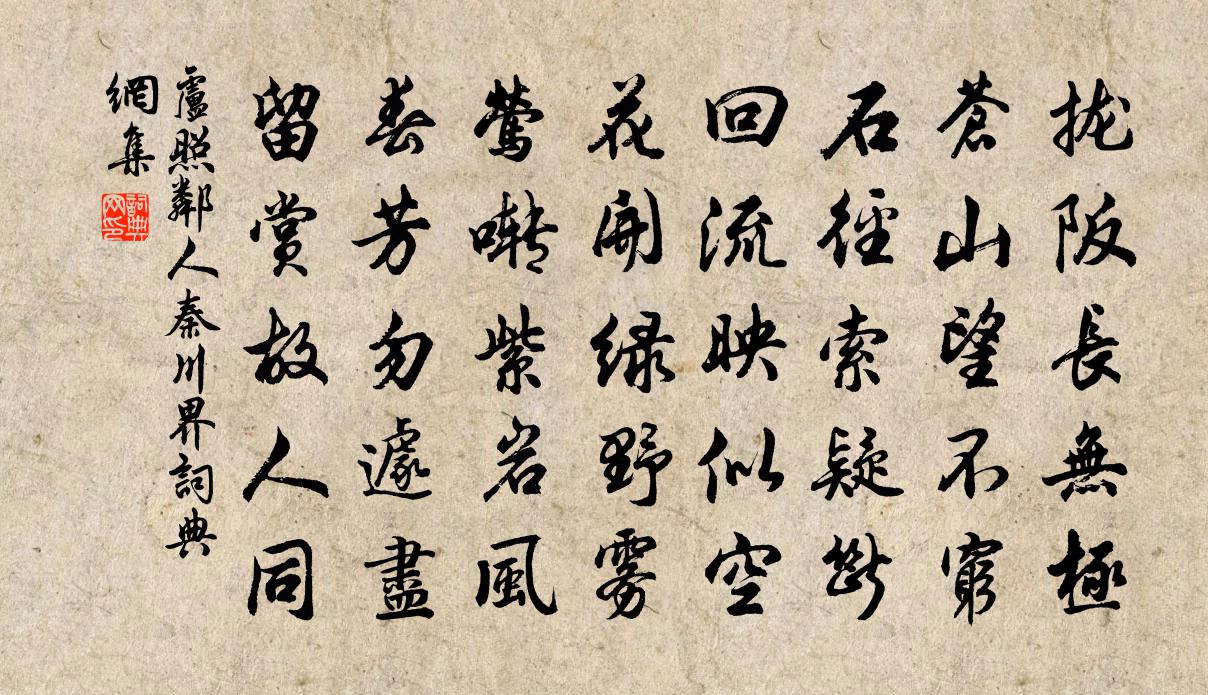 拢阪長無極
蒼山望不窮
石徑索疑斷
回流映似空
花開緑野霧
鶯囀紫岩風
春芳勿遽盡
留賞故人同
盧照鄰人秦川界詞典
網集
詞典
网印